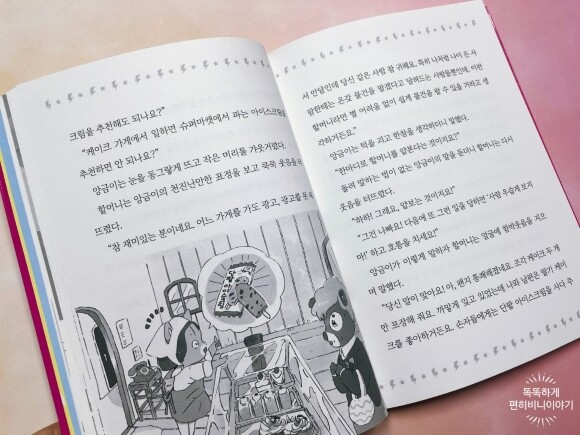 크림을 추천해도 되나요?"
"케이크 가게에서 일하면 슈퍼마켓에서 파는 아이스크림을
추천하면 안 되나요?"
앙금이는 눈을 동그랗게 뜨고 작은 머리를 갸웃거렸다.
할머니는 앙금이의 천진난만한 표정을 보고 쿡쿡 웃음을
뜨렸다.
"참 재미있는 분이네요. 어느 가게를 가도 광고, 광고를
서 안달인데 당신 같은 사람 참 귀해요. 특히 나처럼 나이 든 사
람한테는 온갖 물건을 팔겠다고 달려드는 사람들뿐인데. 이런
할머니라면 별 어려움 없이 쉽게 물건을 팔 수 있을 거라고 생
각하거든요."
앙금이는 턱을 괴고 한참을 생각하더니 말했다.
"한마디로 할머니를 얕본다는 것이지요?"
돌려 말하는 법이 없는 앙금이의 말을 듣더니 할머니는 다시
웃음을 터뜨렸다.
"하하! 그래요, 얕보는 것이지요!"
"그건 나빠요! 다음에 또 그런 일을 당하면 '사람 우습게 보지
마!' 하고 호통을 치세요!"
앙금이가 이렇게 말하자 할머니는 얼굴에 함박웃음을 지으
며 말했다.
"당신 말이 맞아요! 아, 왠지 통쾌해졌네요. 조각 케이크 두 개
만 포장해 줘요. 까맣게 잊고 있었는데 나와 남편은 딸기 케이
크를 좋아하거든요. 손자들에게는 단팥 아이스크림을 사다 주
똑똑하게
편히비니이야기